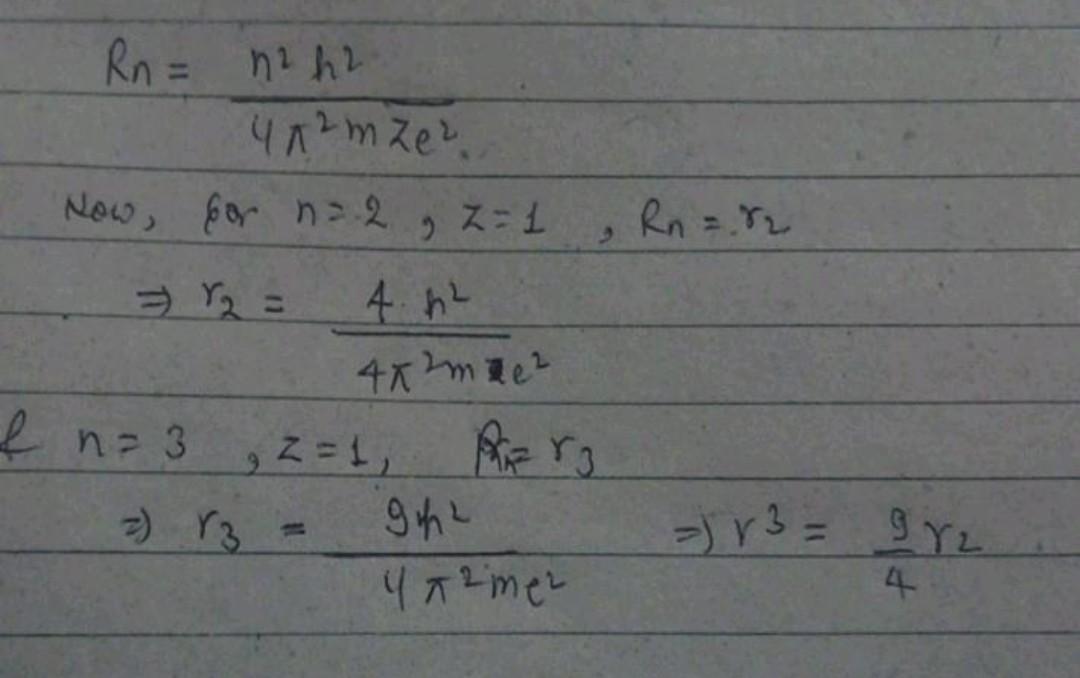 Rn = n² h² / 4π²mZe².
Now, for n = 2, z = 1, Rn = r₂
⇒ r₂ = 4 · h² / 4π²me²
& n = 3, z = 1, Rn = r₃
⇒ r₃ = 9h² / 4π²me² ⇒ r³ = 9/4 r₂